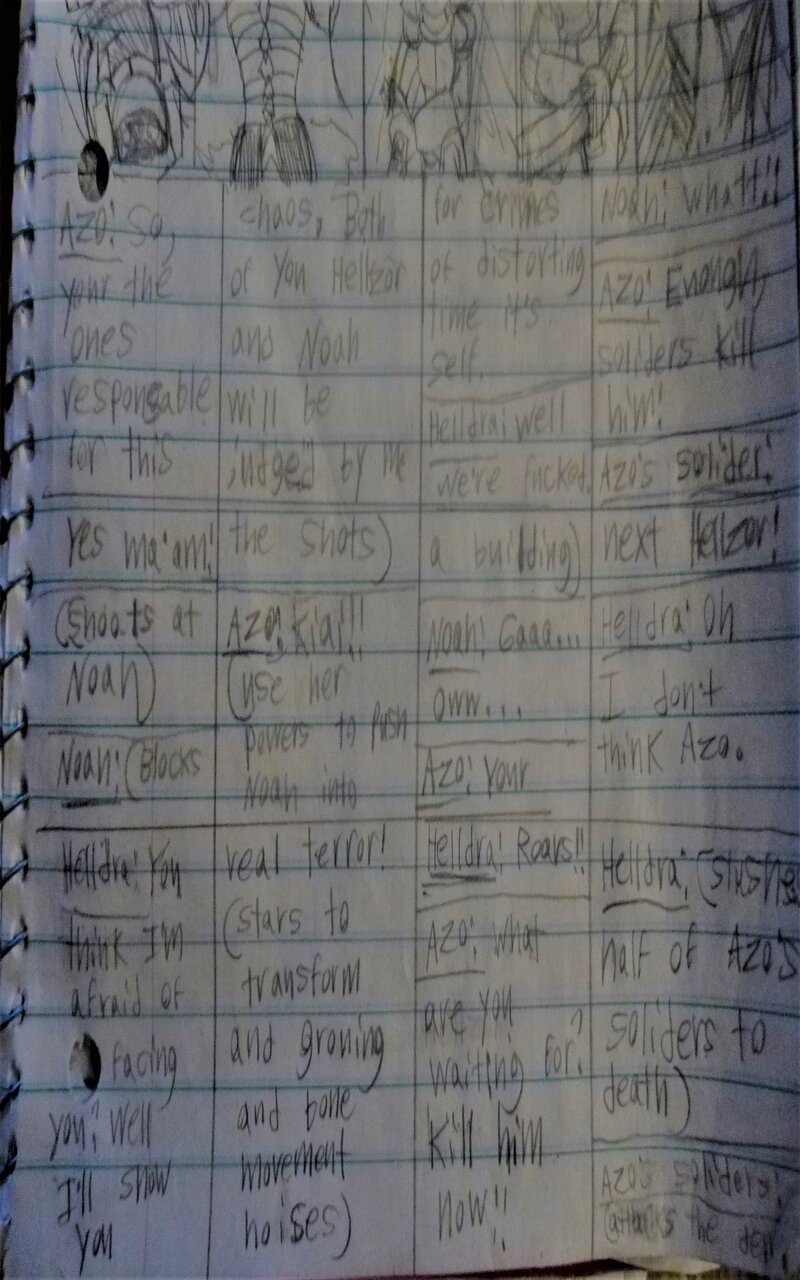 Azo: So,
your the
ones
responsable
for this
chaos, Both
of You Hellzor
and Noah
will be
judged by me
for crimes
of distorting
time it's
self.
Helldra: well
we're fucked.
Noah: what!!
Azo: Enough,
soliders kill
him!
Azo's solider:
Yes ma'am!
(Shoots at
Noah)
Noah: (Blocks
the shots)
Azo: Kiai!!
(use her
powers to Push
Noah into
a building)
Noah: Gaaa...
oww...
Azo: Your
next Hellzor!
Helldra: Oh
I don't
think Azo.
Helldra: You
think I'm
afraid of
facing
you? Well
I'll show
you
real terror!
(stars to
transform
and growing
and bone
movement
noises)
Helldra: Roars!!
Azo: What
are you
waiting for?
Kill him
now!!
Helldra: (slushes
half of Azo's
soliders to
death)
Azo's soliders:
(attacks the